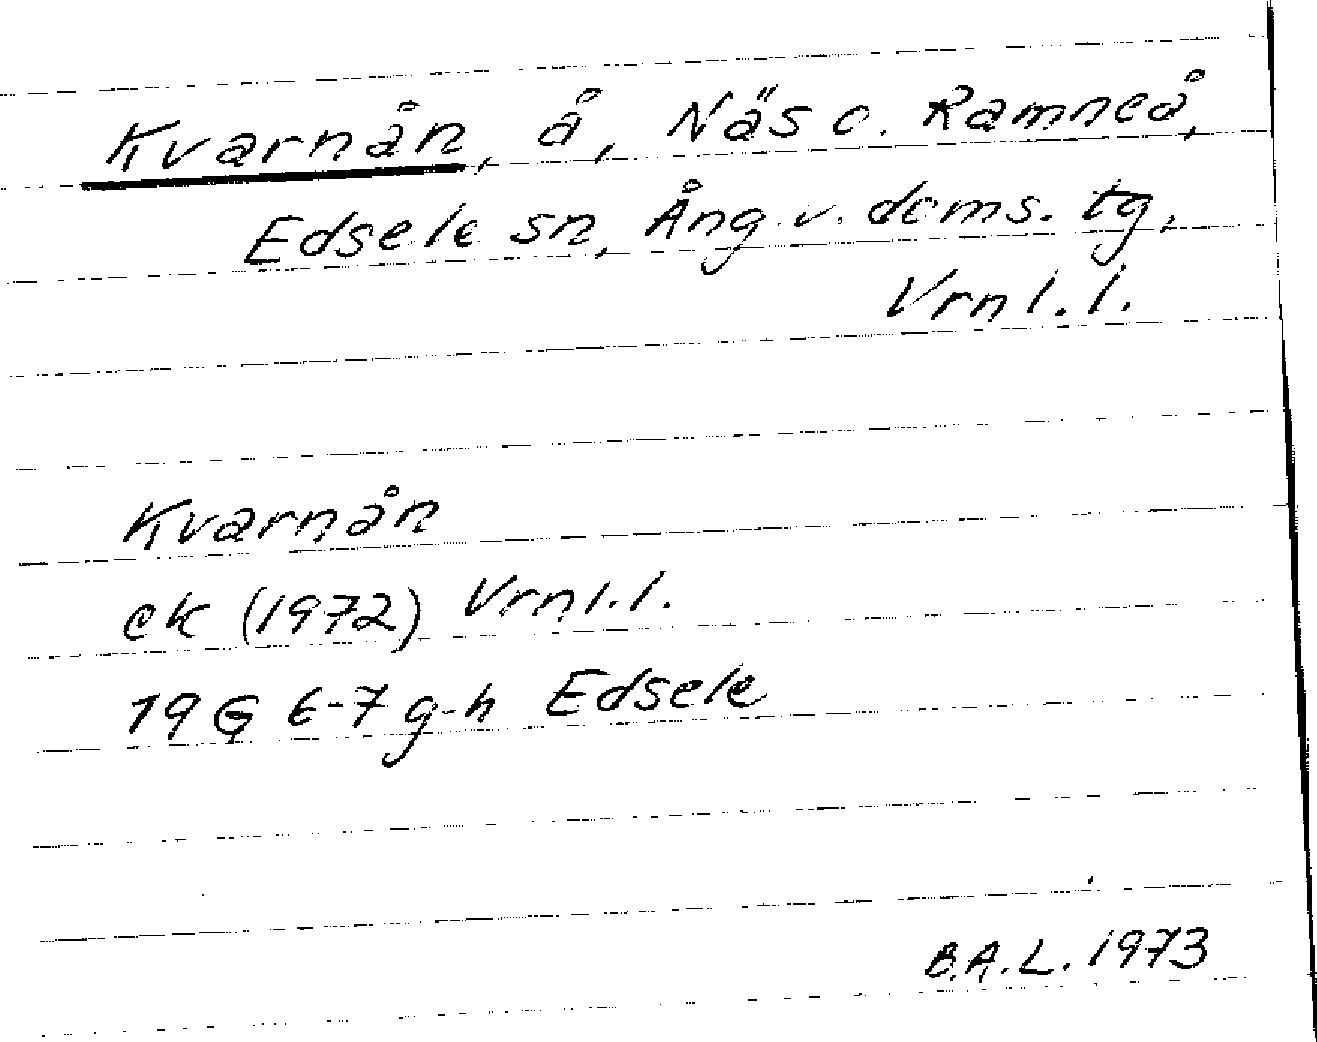 Kvarnån, å, Näs o. Ramneå,
Edsele sn, Ång. v. doms. tg,
Vrnl. l.
Kvarnån
ek (1972) Vrnl. l.
19 G 6-7 g-h Edsele
B.A.L. 1973